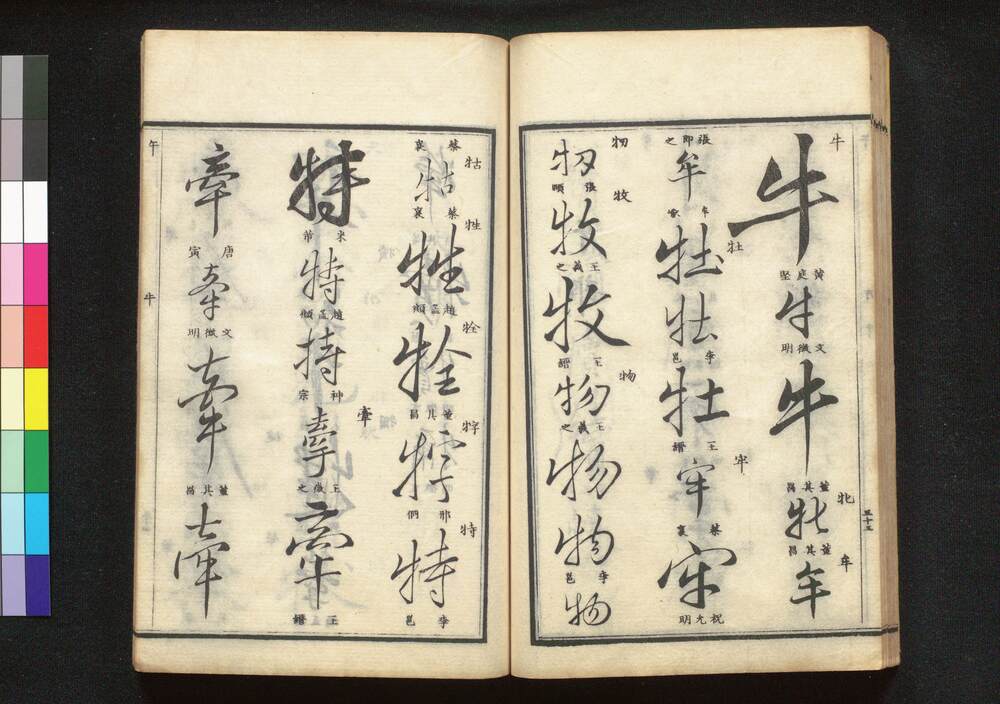 牛
牛
黄庭堅
牛
文徴明
牛
董其昌
牝
牝
董其昌
牟
牟
五十三
張即之
牟
牡
牡
牡
李邕
牡
王縉
牢
牢
蔡襄
牢
祝允明
牣
牣
牧
牧
王羲之
牧
王縉
物
物
王羲之
物
物
李邕
物
蔡襄
牯
牯
蔡襄
牲
牲
趙孟頫
牷
牷
董其昌
牸
牸
邢侗
特
特
李邕
特
米芾
特
趙孟頫
特
神宗
牽
牽
牽
王縉
牽
唐寅
牽
文徴明
牽
董其昌
牽
午
牛